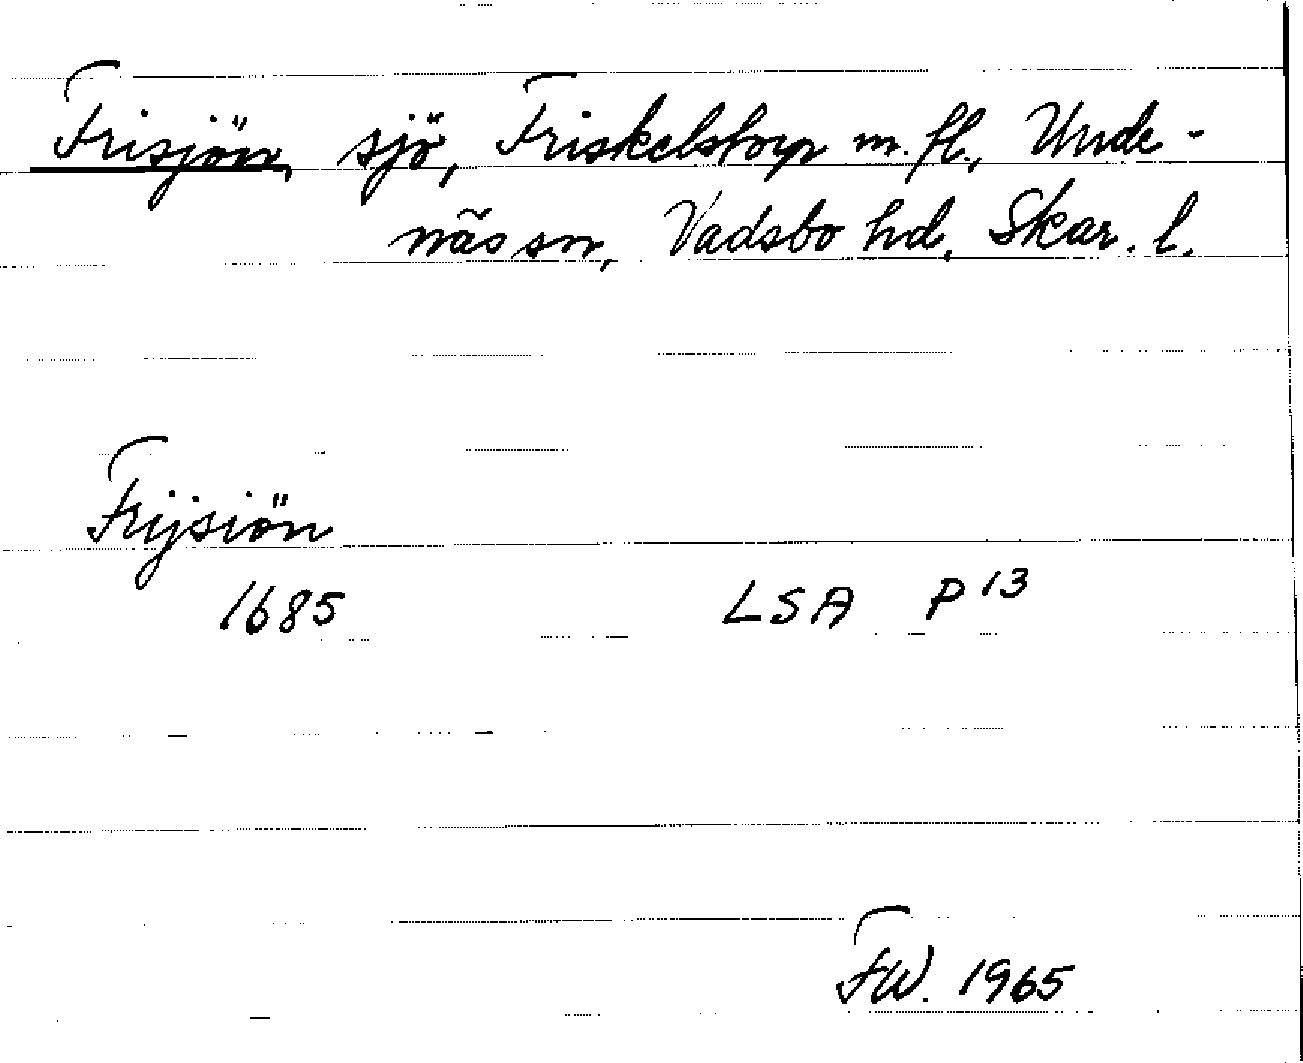 Frisjön, sjö, Friskelstorp m. fl., Unde-
näs sn, Vadsbo hd, Skar. l.
Frijsiön
1685 LSA P 13
FW. 1965